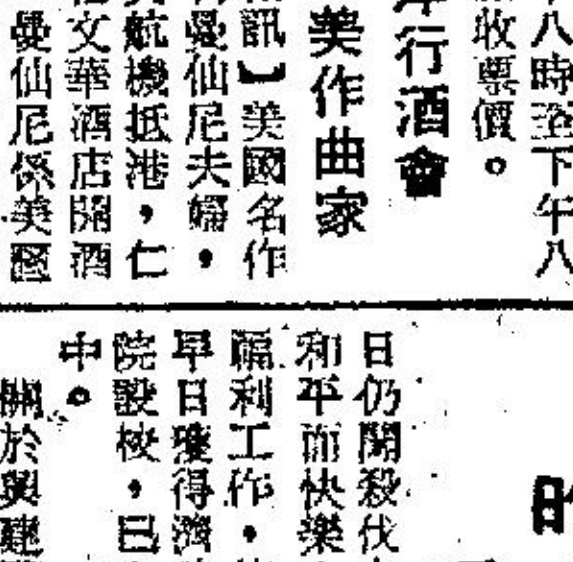 八時至下午八
收票價。
行酒會
美作曲家
訊】美國名作
曼仙尼夫婦，
航機抵港，仁
文華酒店開酒
曼仙尼係美國
日仍開殺伐
和平而快樂
福利工作，
早日獲得濟
院設校，已
中。
關於興建